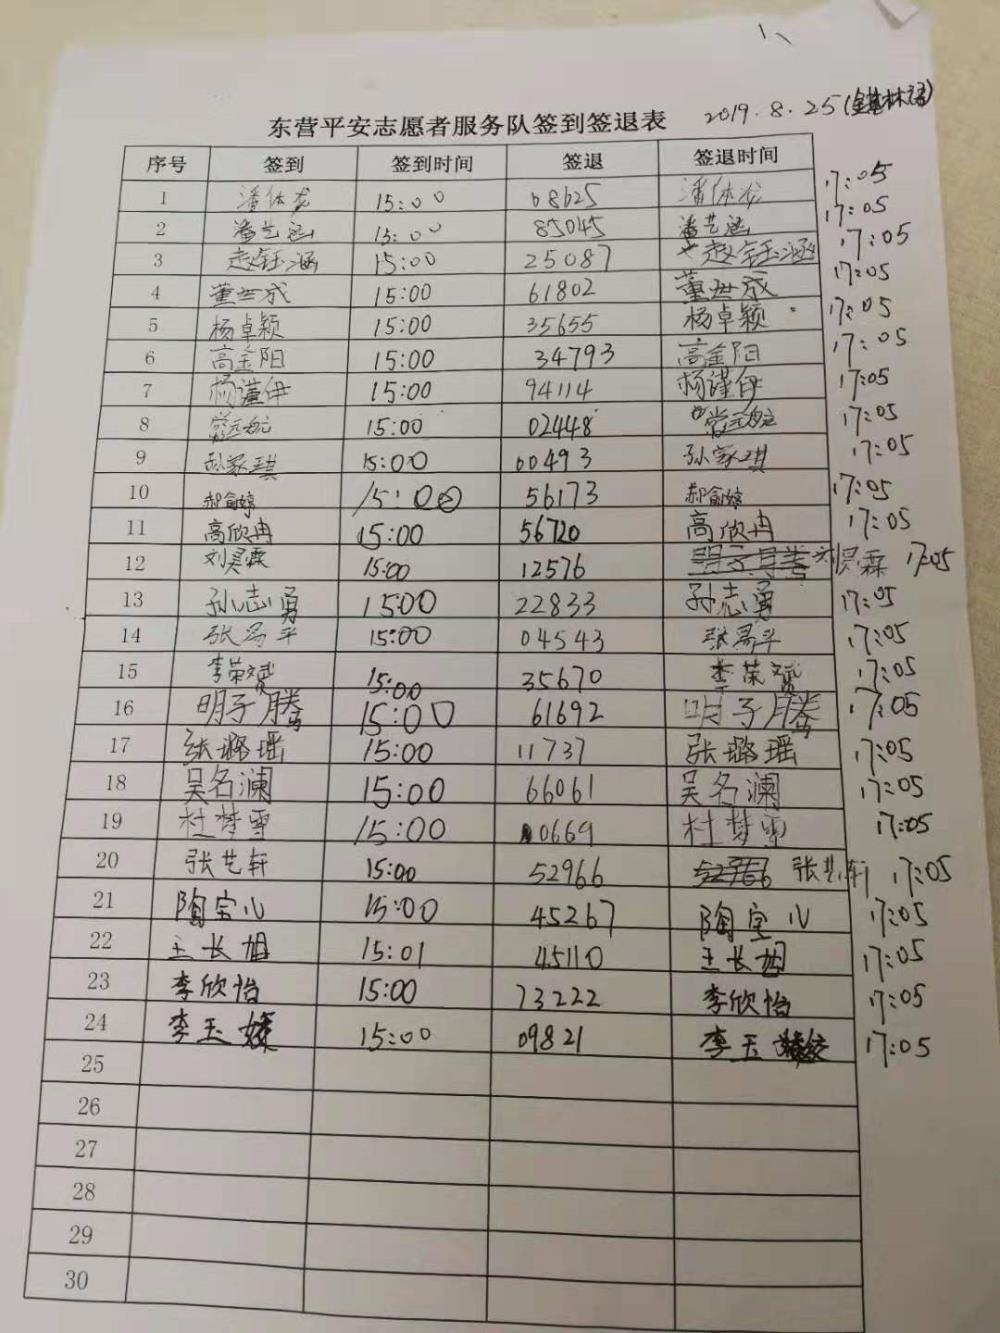 东营平安志愿者服务队签到签退表 2019.8.25(金基林语)
序号 签到 签到时间 签退 签退时间
1 潘依龙 15:00 08625 潘依龙 17:05
2 潘艺涵 15:00 85045 潘艺涵 17:05
3 赵钰涵 15:00 25087 赵钰涵 17:05
4 董世成 15:00 61802 董世成 17:05
5 杨卓颖 15:00 35655 杨卓颖 17:05
6 高金阳 15:00 34793 高金阳 17:05
7 杨谨伊 15:00 94114 杨谨伊 17:05
8 15:00 02448 17:05
9 孙家琪 15:00 00493 孙家琪 17:05
10 郝俞婷 15:00 56173 郝俞婷 17:05
11 高欣冉 15:00 56720 高欣冉 17:05
12 刘昊霖 15:00 12576 刘昊霖 17:05
13 孙志勇 1500 22833 孙志勇 17:05
14 张易平 15:00 04543 张易平 17:05
15 李荣斌 15:00 35670 李荣斌 17:05
16 明子腾 15:00 61692 明子腾 17:05
17 张璐瑶 15:00 11737 张璐瑶 17:05
18 吴名澜 15:00 66061 吴名澜 17:05
19 杜梦雪 15:00 0669 杜梦雪 17:05
20 张艺轩 15:00 52966 张艺轩 17:05
21 陶宝儿 15:00 45267 陶宝儿 17:05
22 王长旭 15:01 45110 王长旭 17:05
23 李欣怡 15:00 73222 李欣怡 17:05
24 李玉 15:00 09821 李玉 17:05
25
26
27
28
29
30